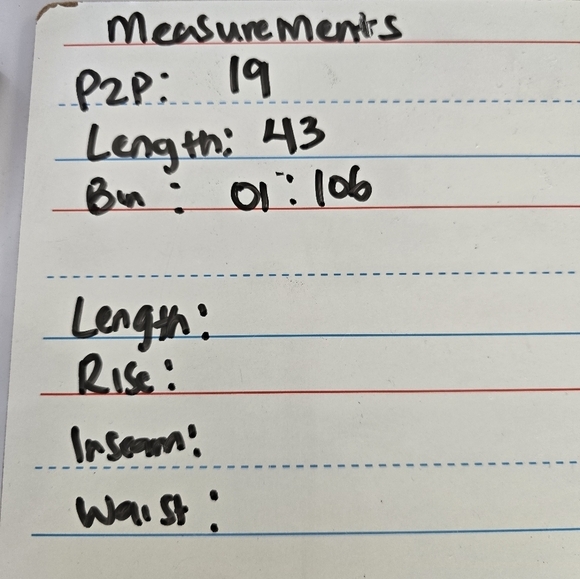 Measurements
P2P: 19
Length: 43
Bin : 01 : 106
Length:
Rise:
Inseam:
Waist: